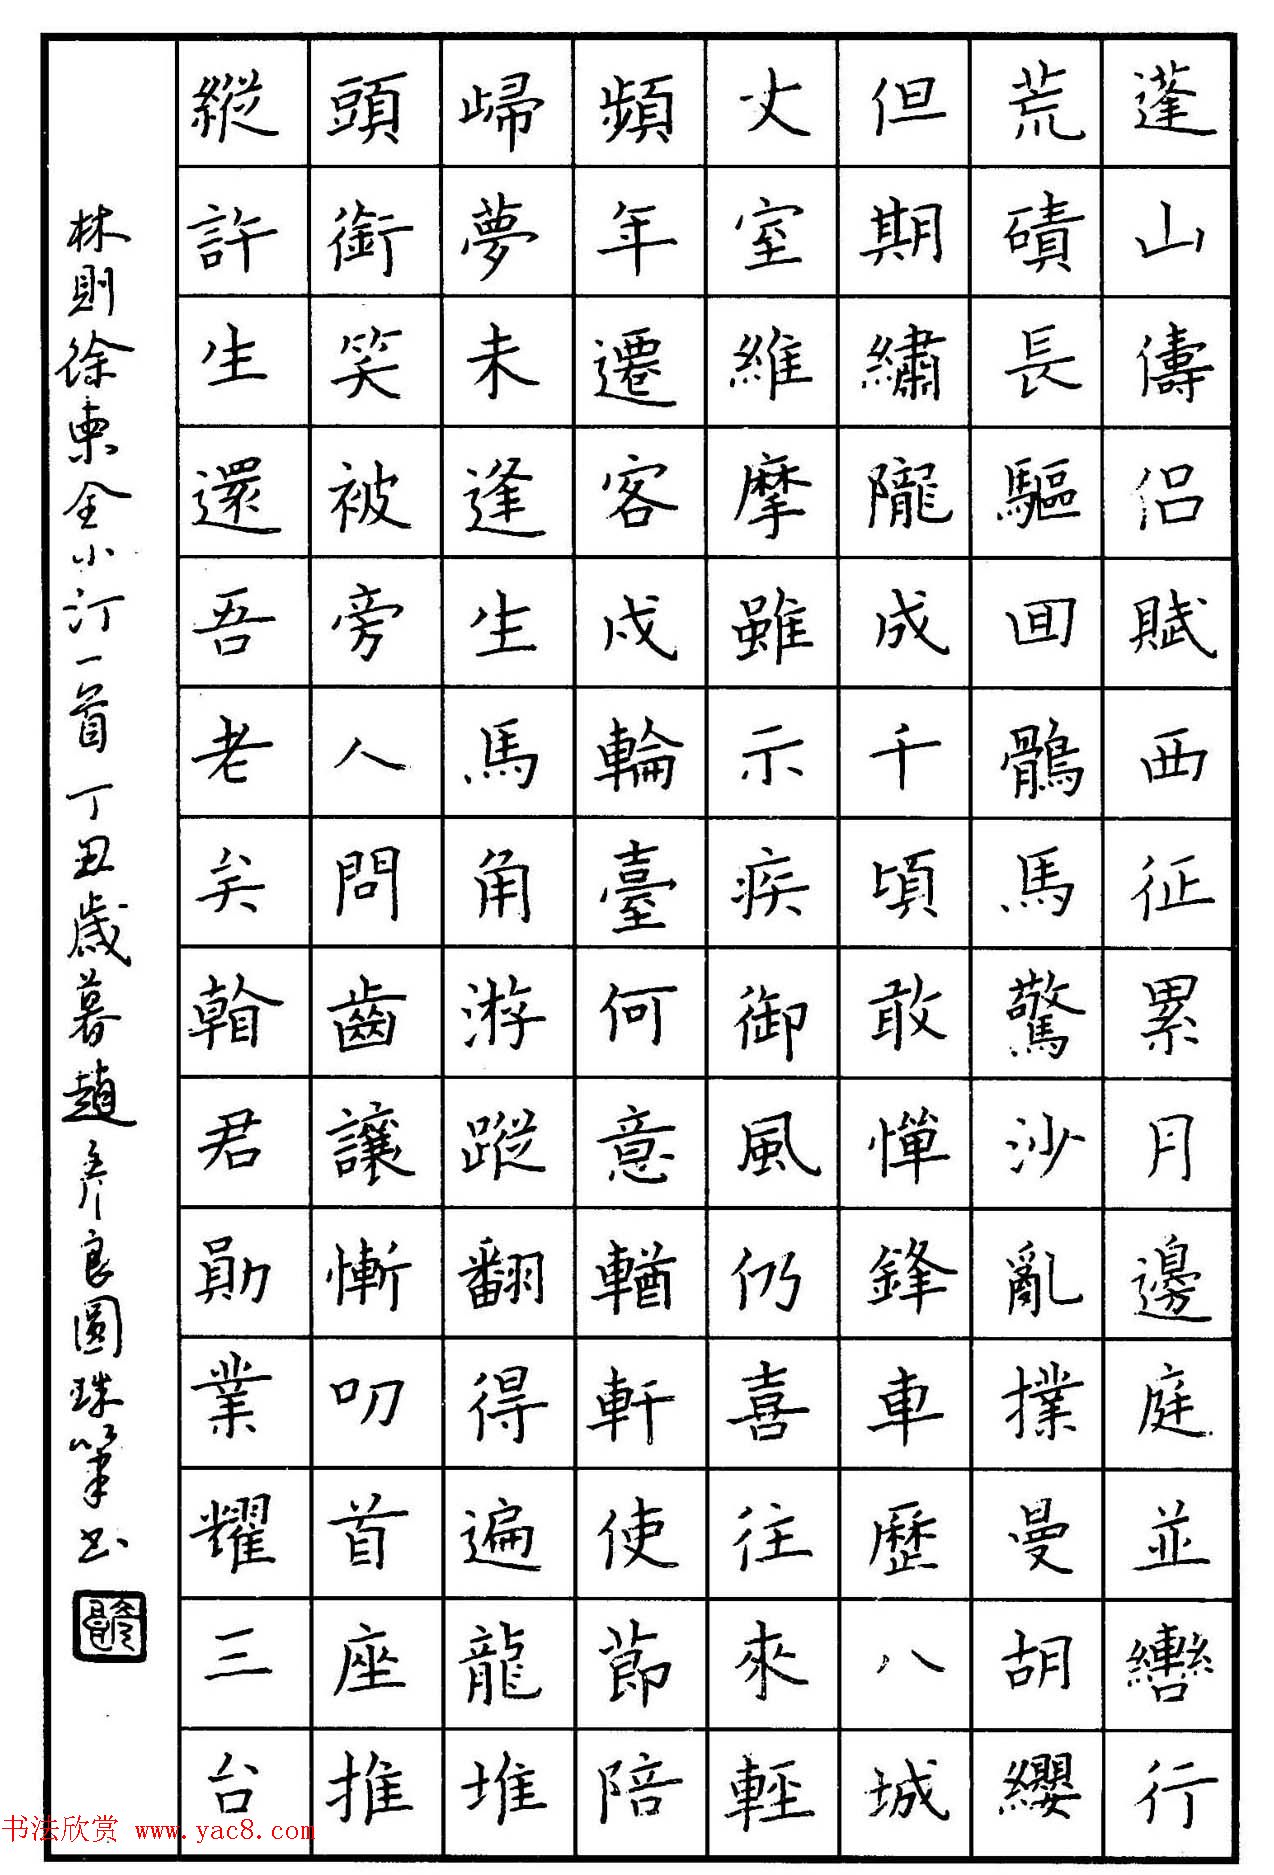 蓬山儔侣賦西征累月邊庭並轡行
荒磧長驅囬鶻馬驚沙亂撲曼胡纓
但期繡隴成千頃敢憚鋒車歷八城
丈室維摩雖示疾御風仍喜往來輕
頻年遷客戍輪臺何意輶軒使節陪
歸夢未逢生馬角游蹤翻得遍龍堆
頭銜笑被旁人問齒讓慚叨首座推
縱許生還吾老矣輸君勛業耀三台
林則徐柬全小汀一首丁丑歲暮趙彥良圓珠筆书
书法欣赏 www.yac8.com